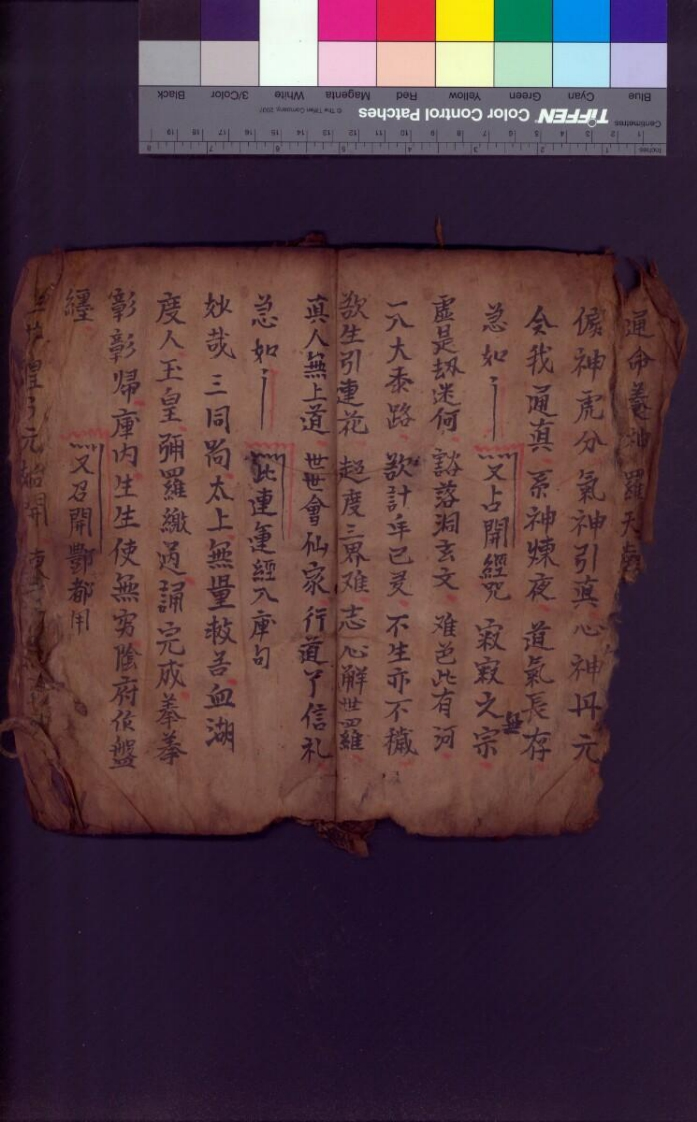 通命養神 羅天
儂神虎分 氣神引真 心神丹元
令我通真 系神煉夜 道氣長存
急如 又占開經咒 寂寂之宗無
虛是刼迷何 豁落洞玄文 难邑此有河
一八大泰路 欲計年已 不生亦不穢
欲生引連花 超度三界难 志心觧世羅
真人無上道 世世會仙家 行道了信礼
急如 此連運經入庫句
妙哉三同尚太上無量救苦血湖
度人玉皇彌羅繳過誦完成奉奉
彰彰歸庫内生生使無穷陰府依盤
纒 又召開酆都用
皇 元始開
TIFFEN Color Control Patches
© The Tiffen Company, 2007
Centimetres
Inches
Blue Cyan Green Yellow Red Magenta White 3/Color Black